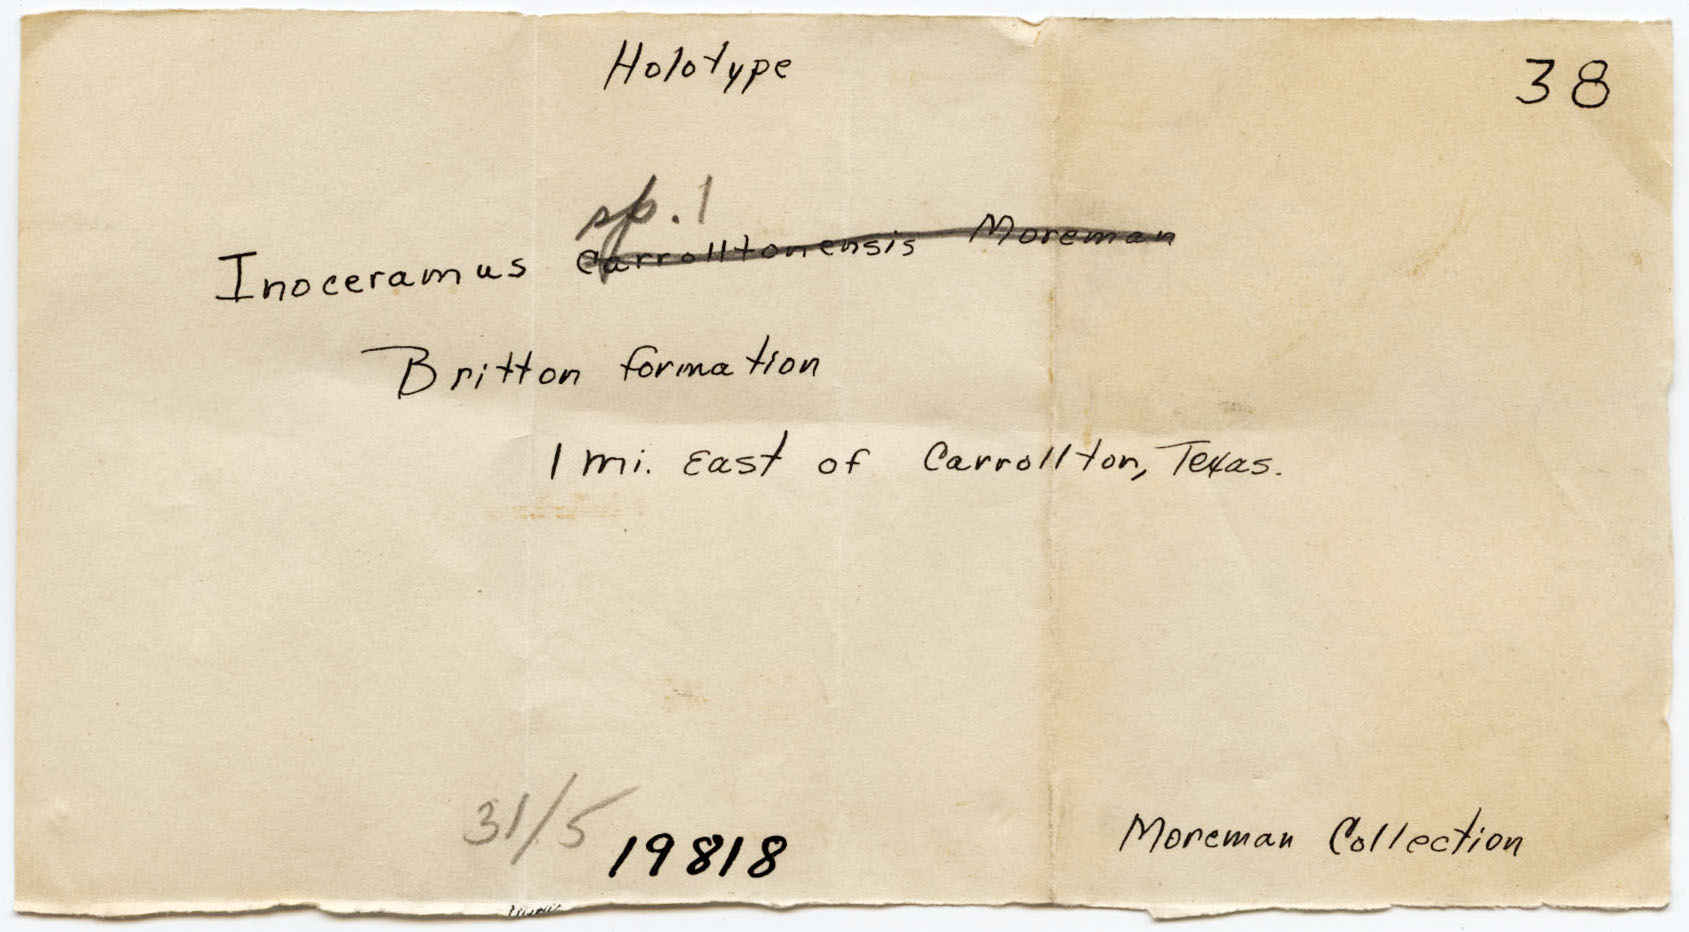 Holotype
38
sp. 1
Inoceramus Carrolltonensis Moreman
Britton formation
1 mi. East of Carrollton, Texas.
31/5
19818
Moreman Collection